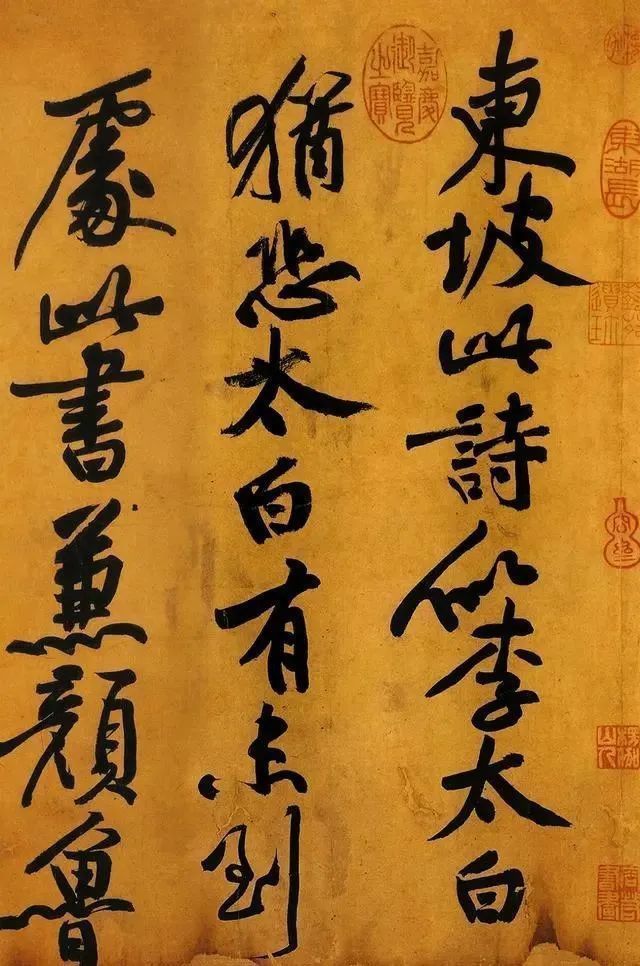 東湖長
東坡此詩似李太白
嘉慶
御覽
之寶
猶恐太白有未到
處此書兼顏魯